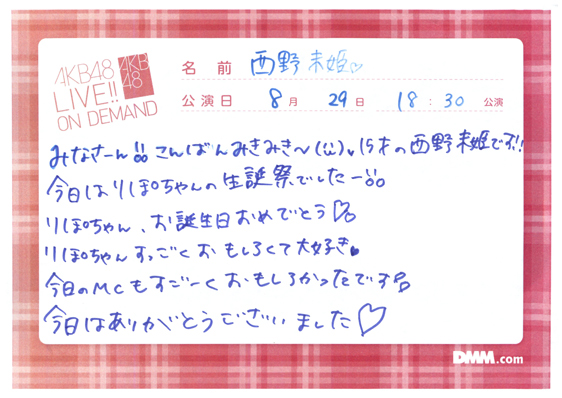 AKB48
LIVE!!
ON DEMAND
AKB
48
名前 西野未姫♡
公演日 8月 29日 18:30 公演
みなさーん!! こんばんみきみき〜(公)、15才の西野未姫です!!
今日はりぽちゃんの生誕祭でしたー!!
りぽちゃん、お誕生日おめでとう♡
りぽちゃんすっごくおもしろくて大好き♥
今日のMCもすごーくおもしろかったです
今日はありがとうございました♡
DMM.com